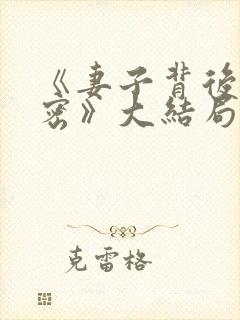 《妻子背後
密》大結局
克雷格